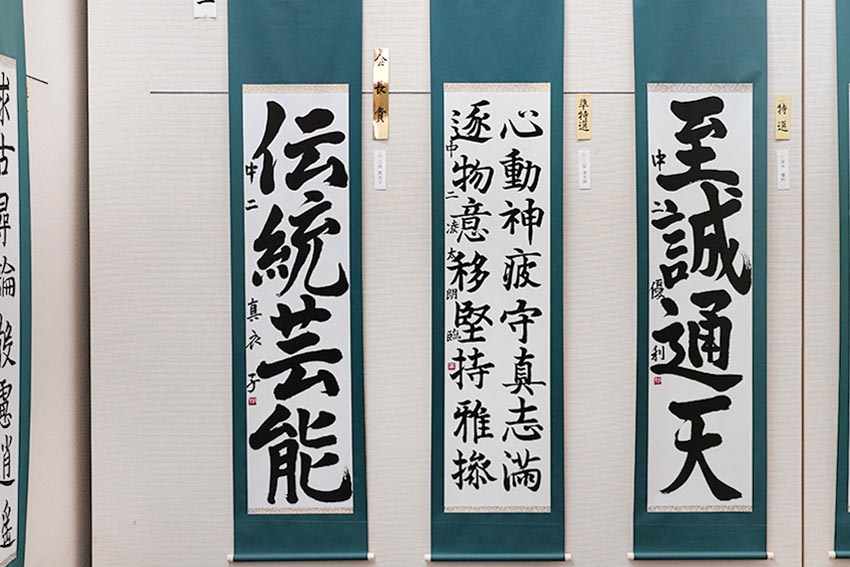 特選
至誠通天
中二 優利
準特選
心動神疲守真志満
逐物意移堅持雅操
中二 凌太朗 臨
会長賞
伝統芸能
中二 真衣子
求古尋論散慮逍遥